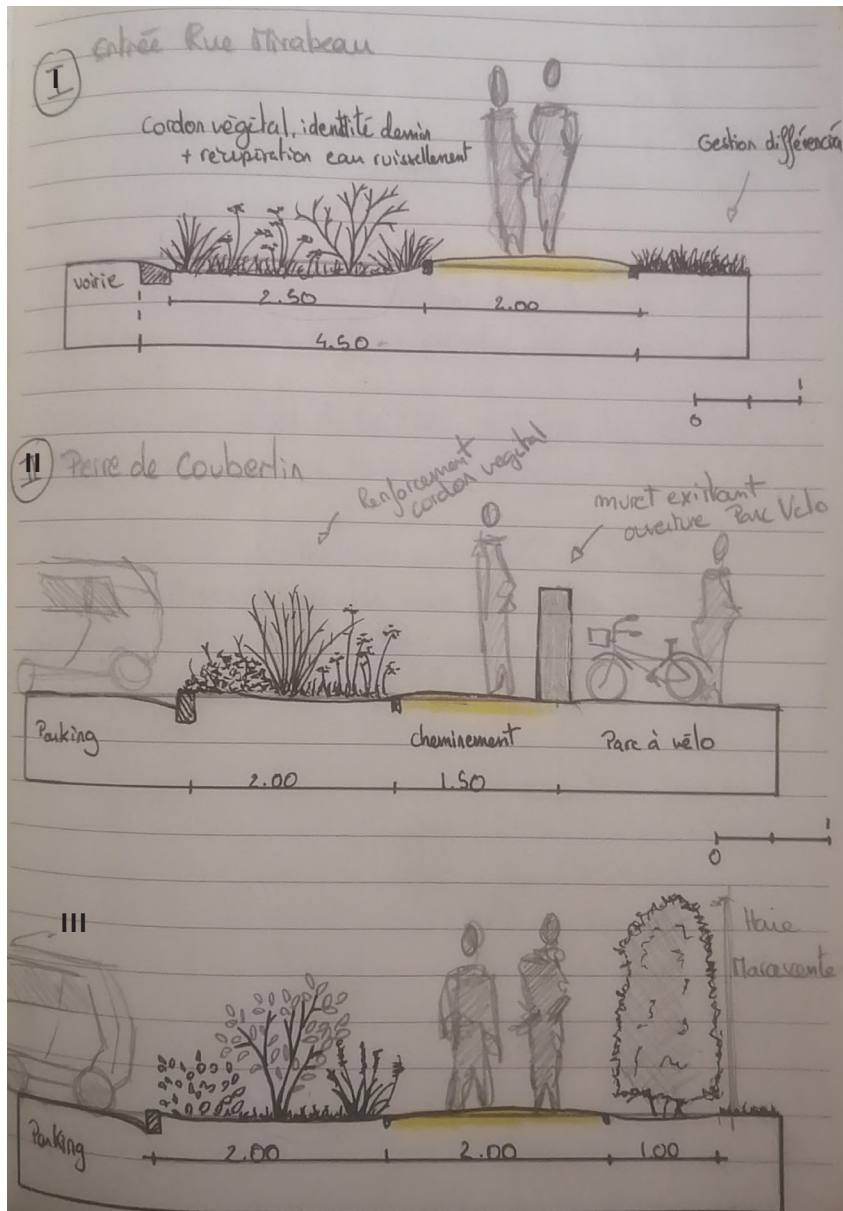 I
Entrée Rue Mirabeau
Cordon végétal, identité
+ récupération eau ruissellement
Gestion
voirie
2.50
2.00
4.50
0
1
II
de Coubertin
Renforcement
cordon végétal
muret existant
ouverture Parc Vélo
Parking
cheminement
Parc à vélo
2.00
1.50
0
1
III
Haie
Parking
2.00
2.00
1.00